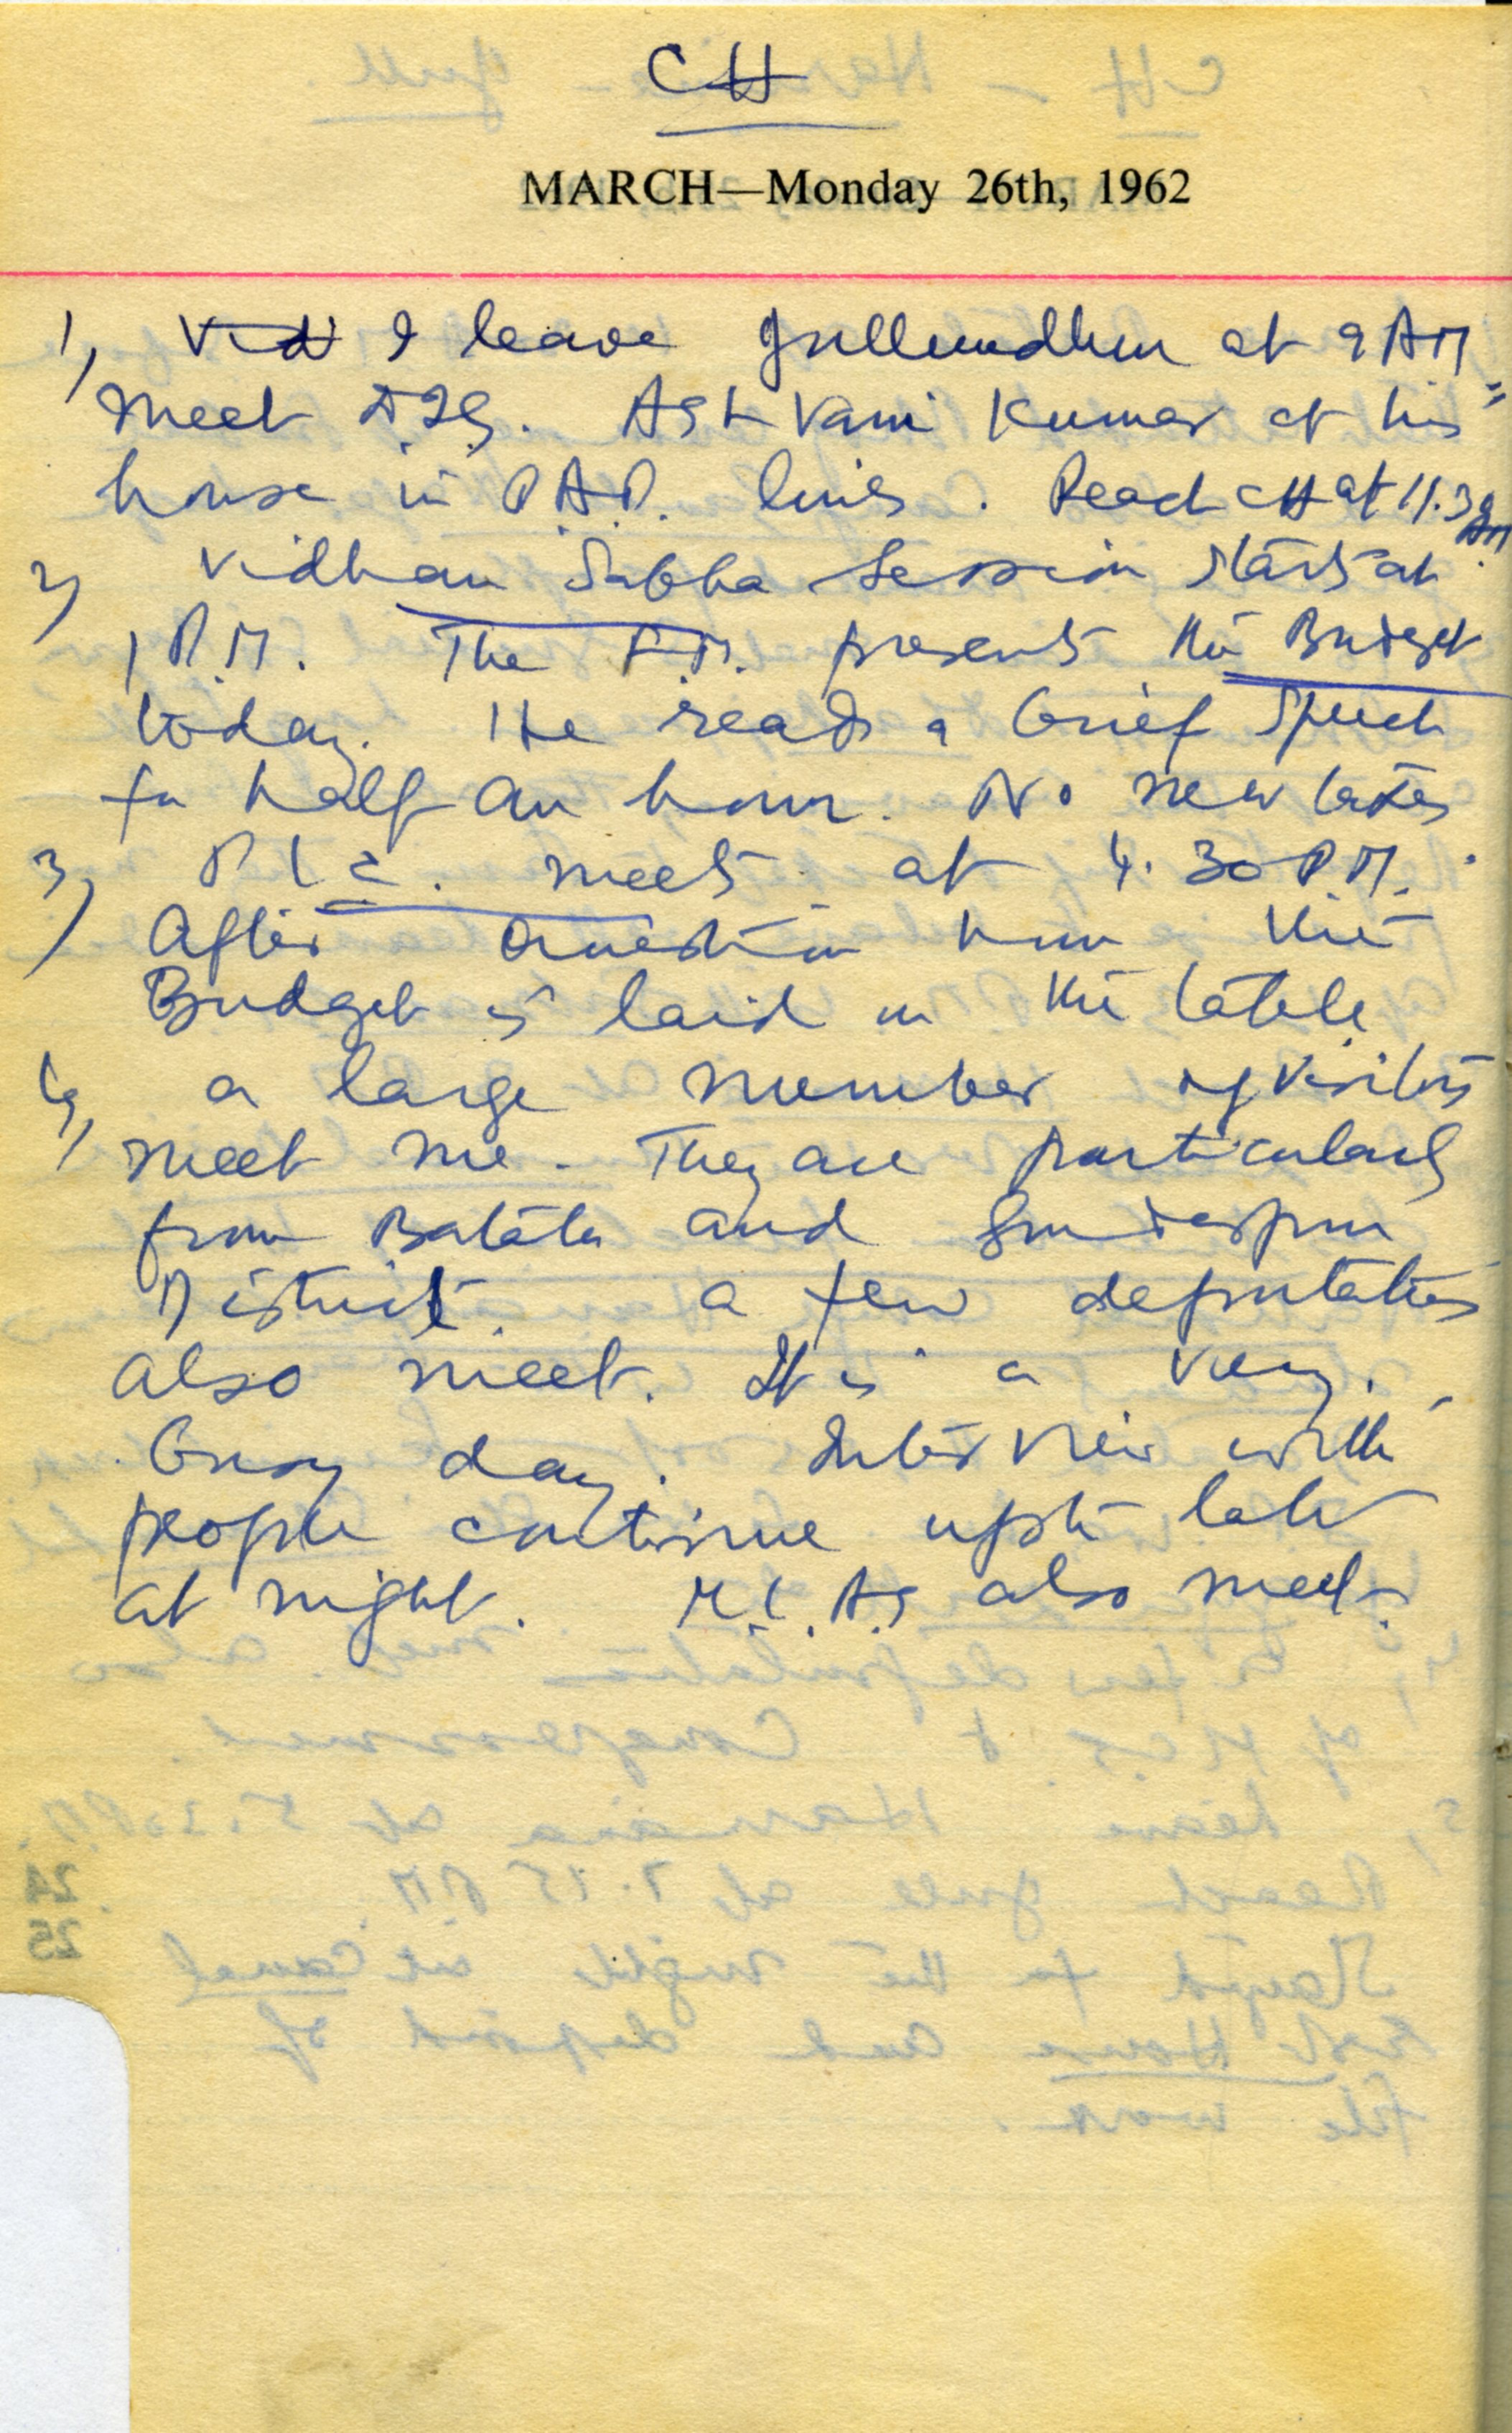 CH
MARCH—Monday 26th, 1962
1) I leave Jullundhur at 9 AM
meet D.I.G. Ashvani Kumar at his
house in P.A.P. lines. Reach CH at 11.30 AM
2) Vidhan Sabha Session starts at
1 P.M. The F.M. presents the Budget
today. He reads a brief speech
for half an hour. No new taxes
3) P L C. meets at 4.30 P.M.
After question hour the
Budget is laid on the table
4) a large number of visitors
meet me. They are particularly
from Batala and Gurdaspur
District. a few deputations
also meet. It is a very
busy day. Interview with
people continue upto late
at night. M.L.As also meet.